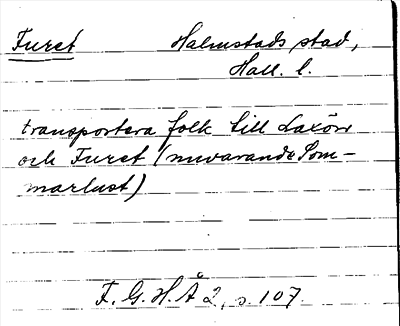 Furet Halmstads stad,
Hall. l.
transportera folk till Laxön
och Furet (nuvarande Som-
marlust)
F. G. H. Å 2, s. 107.